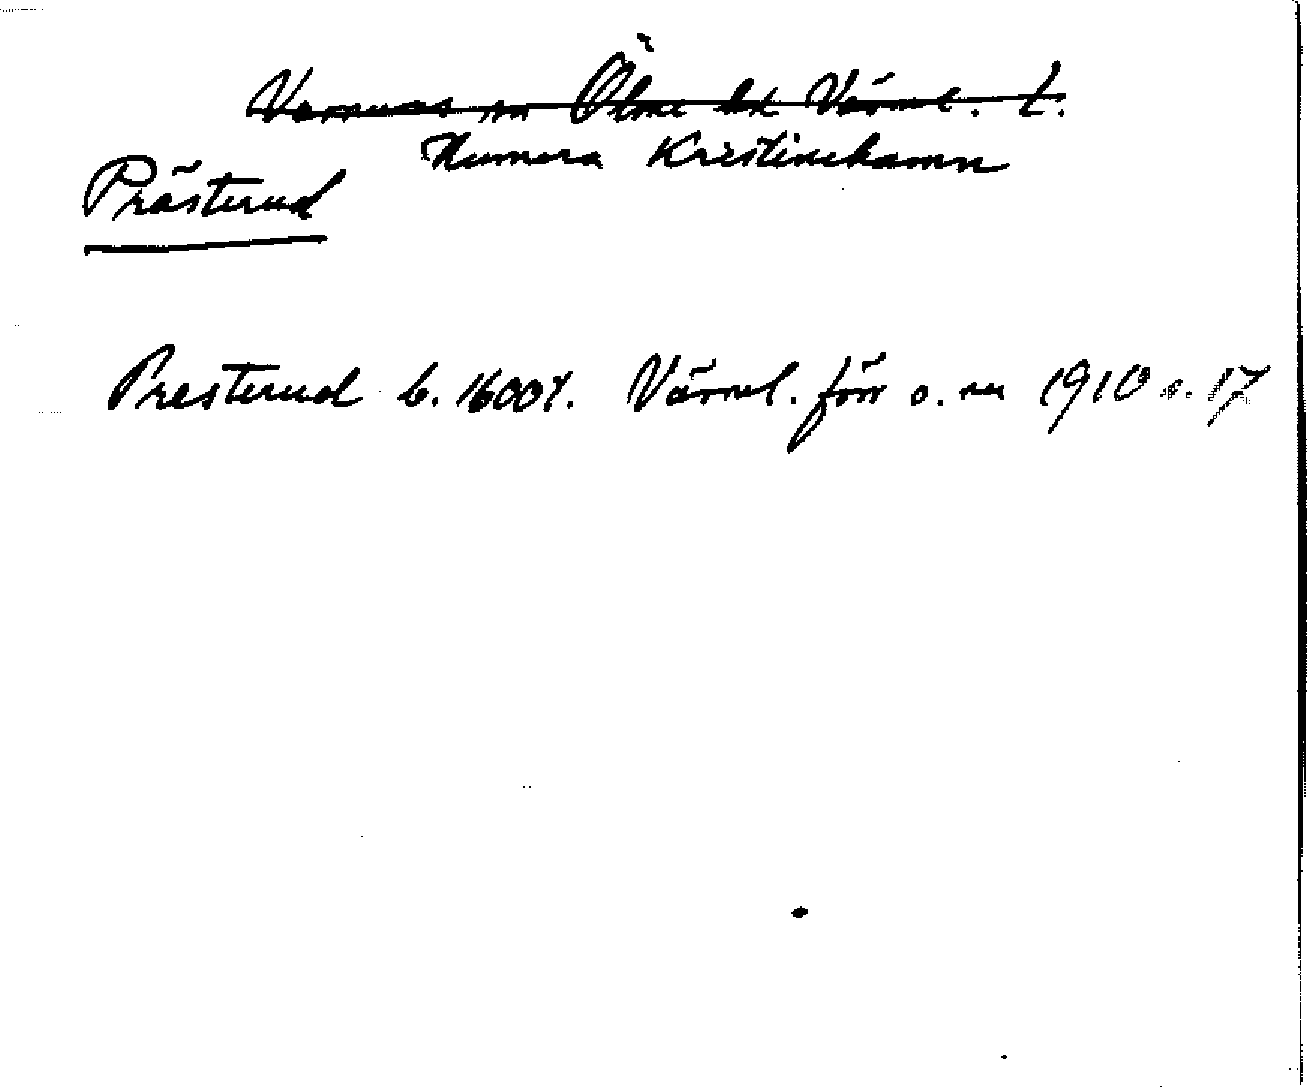 Varnums sn Ölme hd Värml. l.
Numera Kristinehamn
Prästerud
Presterud b. 1600t. Värml. förr o. nu 1910 s. 17